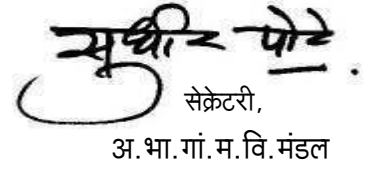 सुधीर पोटे
सेक्रेटरी,
अ.भा.गां.म.वि.मंडल